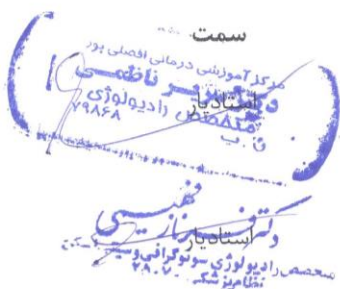 سمت
مرکز آموزشی درمانی افضلی پور
ناظمی
استادیار
متخصص رادیولوژی
۷۹۸۶۸
دکتر
استادیار
متخصص رادیولوژی سونوگرافی و سی تی اسکن
نظام پزشکی